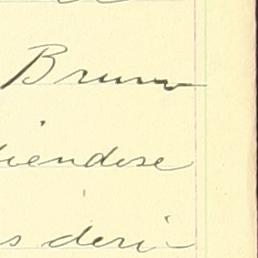 Bruno
iendose
s deri-